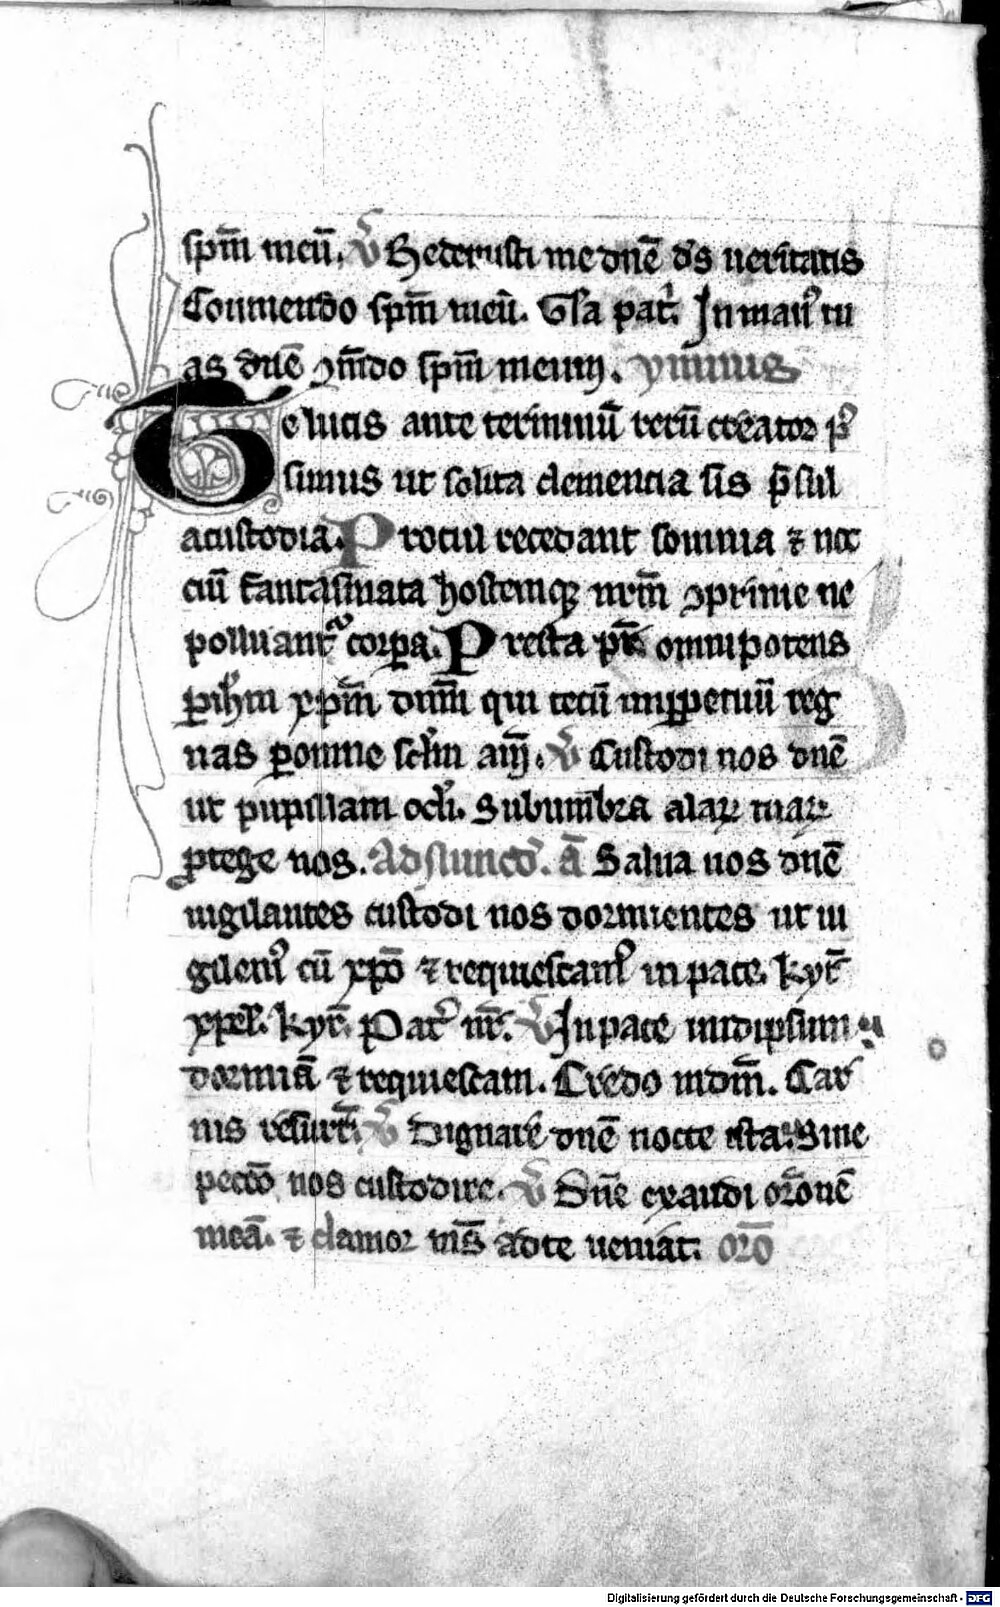 sp̄m meū. v̄ Redemisti me dn̄e d̄s ueritatis
Conmendo sp̄m meū. Gl̄a pat̄. In man᷒ tu
as dn̄e ꝯm̄do sp̄m meum. ymnus
Te lucis ante terminū rerū creator p᷒
simus ut solita clemencia sis p̄sul
acustodia. Procul recedant somnia ⁊ noc
ciū fantasmata hostemqꝫ nrm̄ ꝯprime ne
polluant᷑ corꝑa. Presta pr̄ omnipotens
ꝑ ihm̄ xp̄m dnm̄ qui tecū inꝑpetuū reg
nas ꝑomne sclm̄ am̄. v̄ Custodi nos dn̄e
ut pupillam ocli. Subumbra alaꝝ tuaꝝ
ꝓtege nos. Ad nunc d᷒. a᷒ Salua nos dn̄e
uigilantes custodi nos dormientes ut ui
gilem᷒ cū xp̄o ⁊ requiescam᷒ in pace. kyr̄
xpel̄. kyr̄. Pat̄ nr̄. v̄ In pace inidipsum
dormiā ⁊ requiescam. Credo indm̄. Car
nis resurr̄. v̄ Dignare dn̄e nocte ista. Sine
pecc̄o nos custodire. v̄ Dn̄e exaudi or̄onē
meā. ⁊ clamor m̄s adte ueniat. or̄o
Digitalisierung gefördert durch die Deutsche Forschungsgemeinschaft - DFG